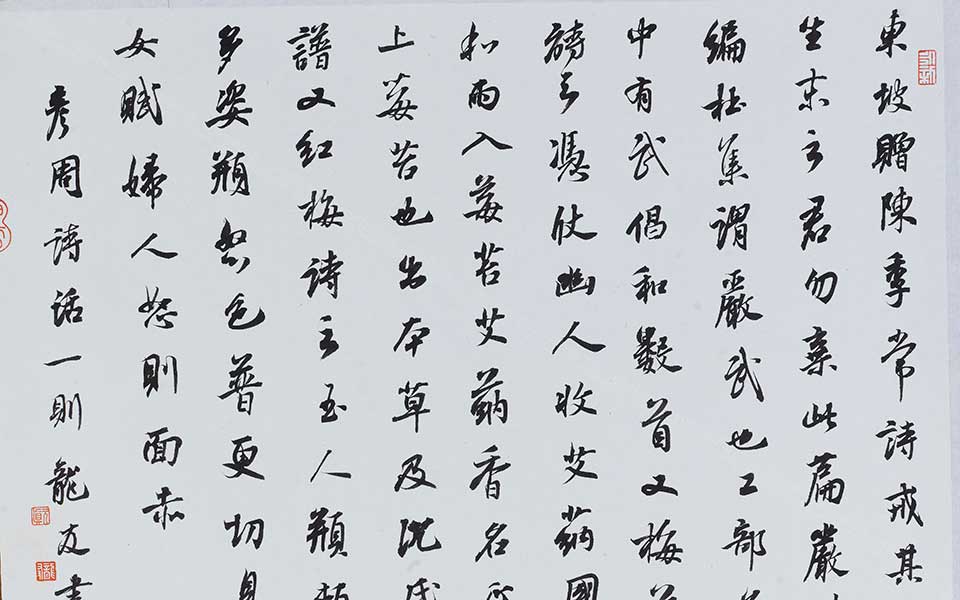 東坡贈陳季常詩戒其
生末云君勿棄此篇嚴
編杜集謂嚴武也工部
中有武倡和數首又梅
詩云憑仗幽人收艾蒳國
和雨入莓苔艾蒳香名
上莓苔也出本草及沈氏
譜又紅梅詩云玉人頩
多姿頩怒色普更切見
女賦婦人怒則面赤
彥周詩話一則龍友書